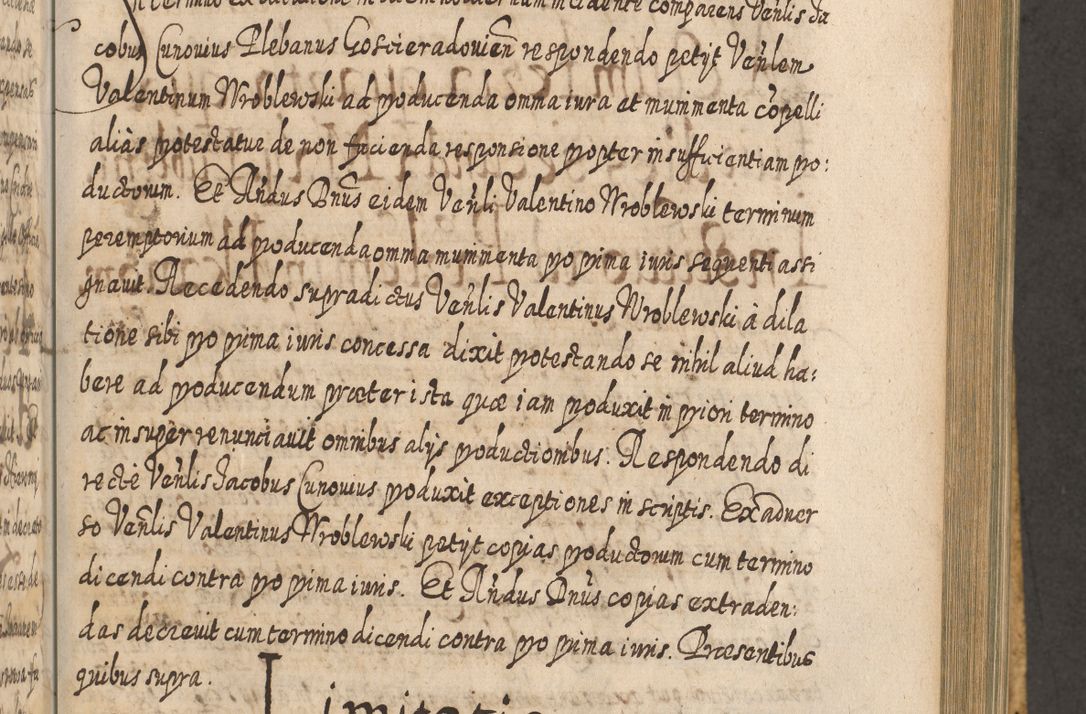 In termino ex dilatione in eodem hodiernum incidente comparens Venlis Ja
cobus Cunovius Plebanus Goscieradovien̄ respondendo petijt Ven̄lem
Valentinum Wroblewski ad producenda omnia iura et munimenta co͞pelli
aliàs protestatur de non facienda responsione propter insufficientiam pro:
ductorum. Et Ān̄dus Dn̄us eidem Ven̄li Valentino Wroblewski terminum
peremptorium ad producenda omnia munimenta pro prima iuris sequenti assi
gnavit. Recedendo supradictus Ven̄lis Valentinus Wroblewski à dila
tione sibi pro prima iuris concessa dixit protestando se nihil aliud ha:
bere ad producendum præter ista quæ iam produxit in priori termino
ac insuper renunciavit omnibus alijs productionibus. Respondendo di
rectè Ven̄lis Jacobus Cunovius produxit exceptiones in scriptis. Ex adver
so Ven̄lis Valentinus Wroblewski petijt copias productorum cum termino
dicendi contra pro prima iuris. Et Ān̄dus Dn̄us copias extraden:
das decrevit cum termino dicendi contra pro prima iuris. Præsentibus
quibus supra.